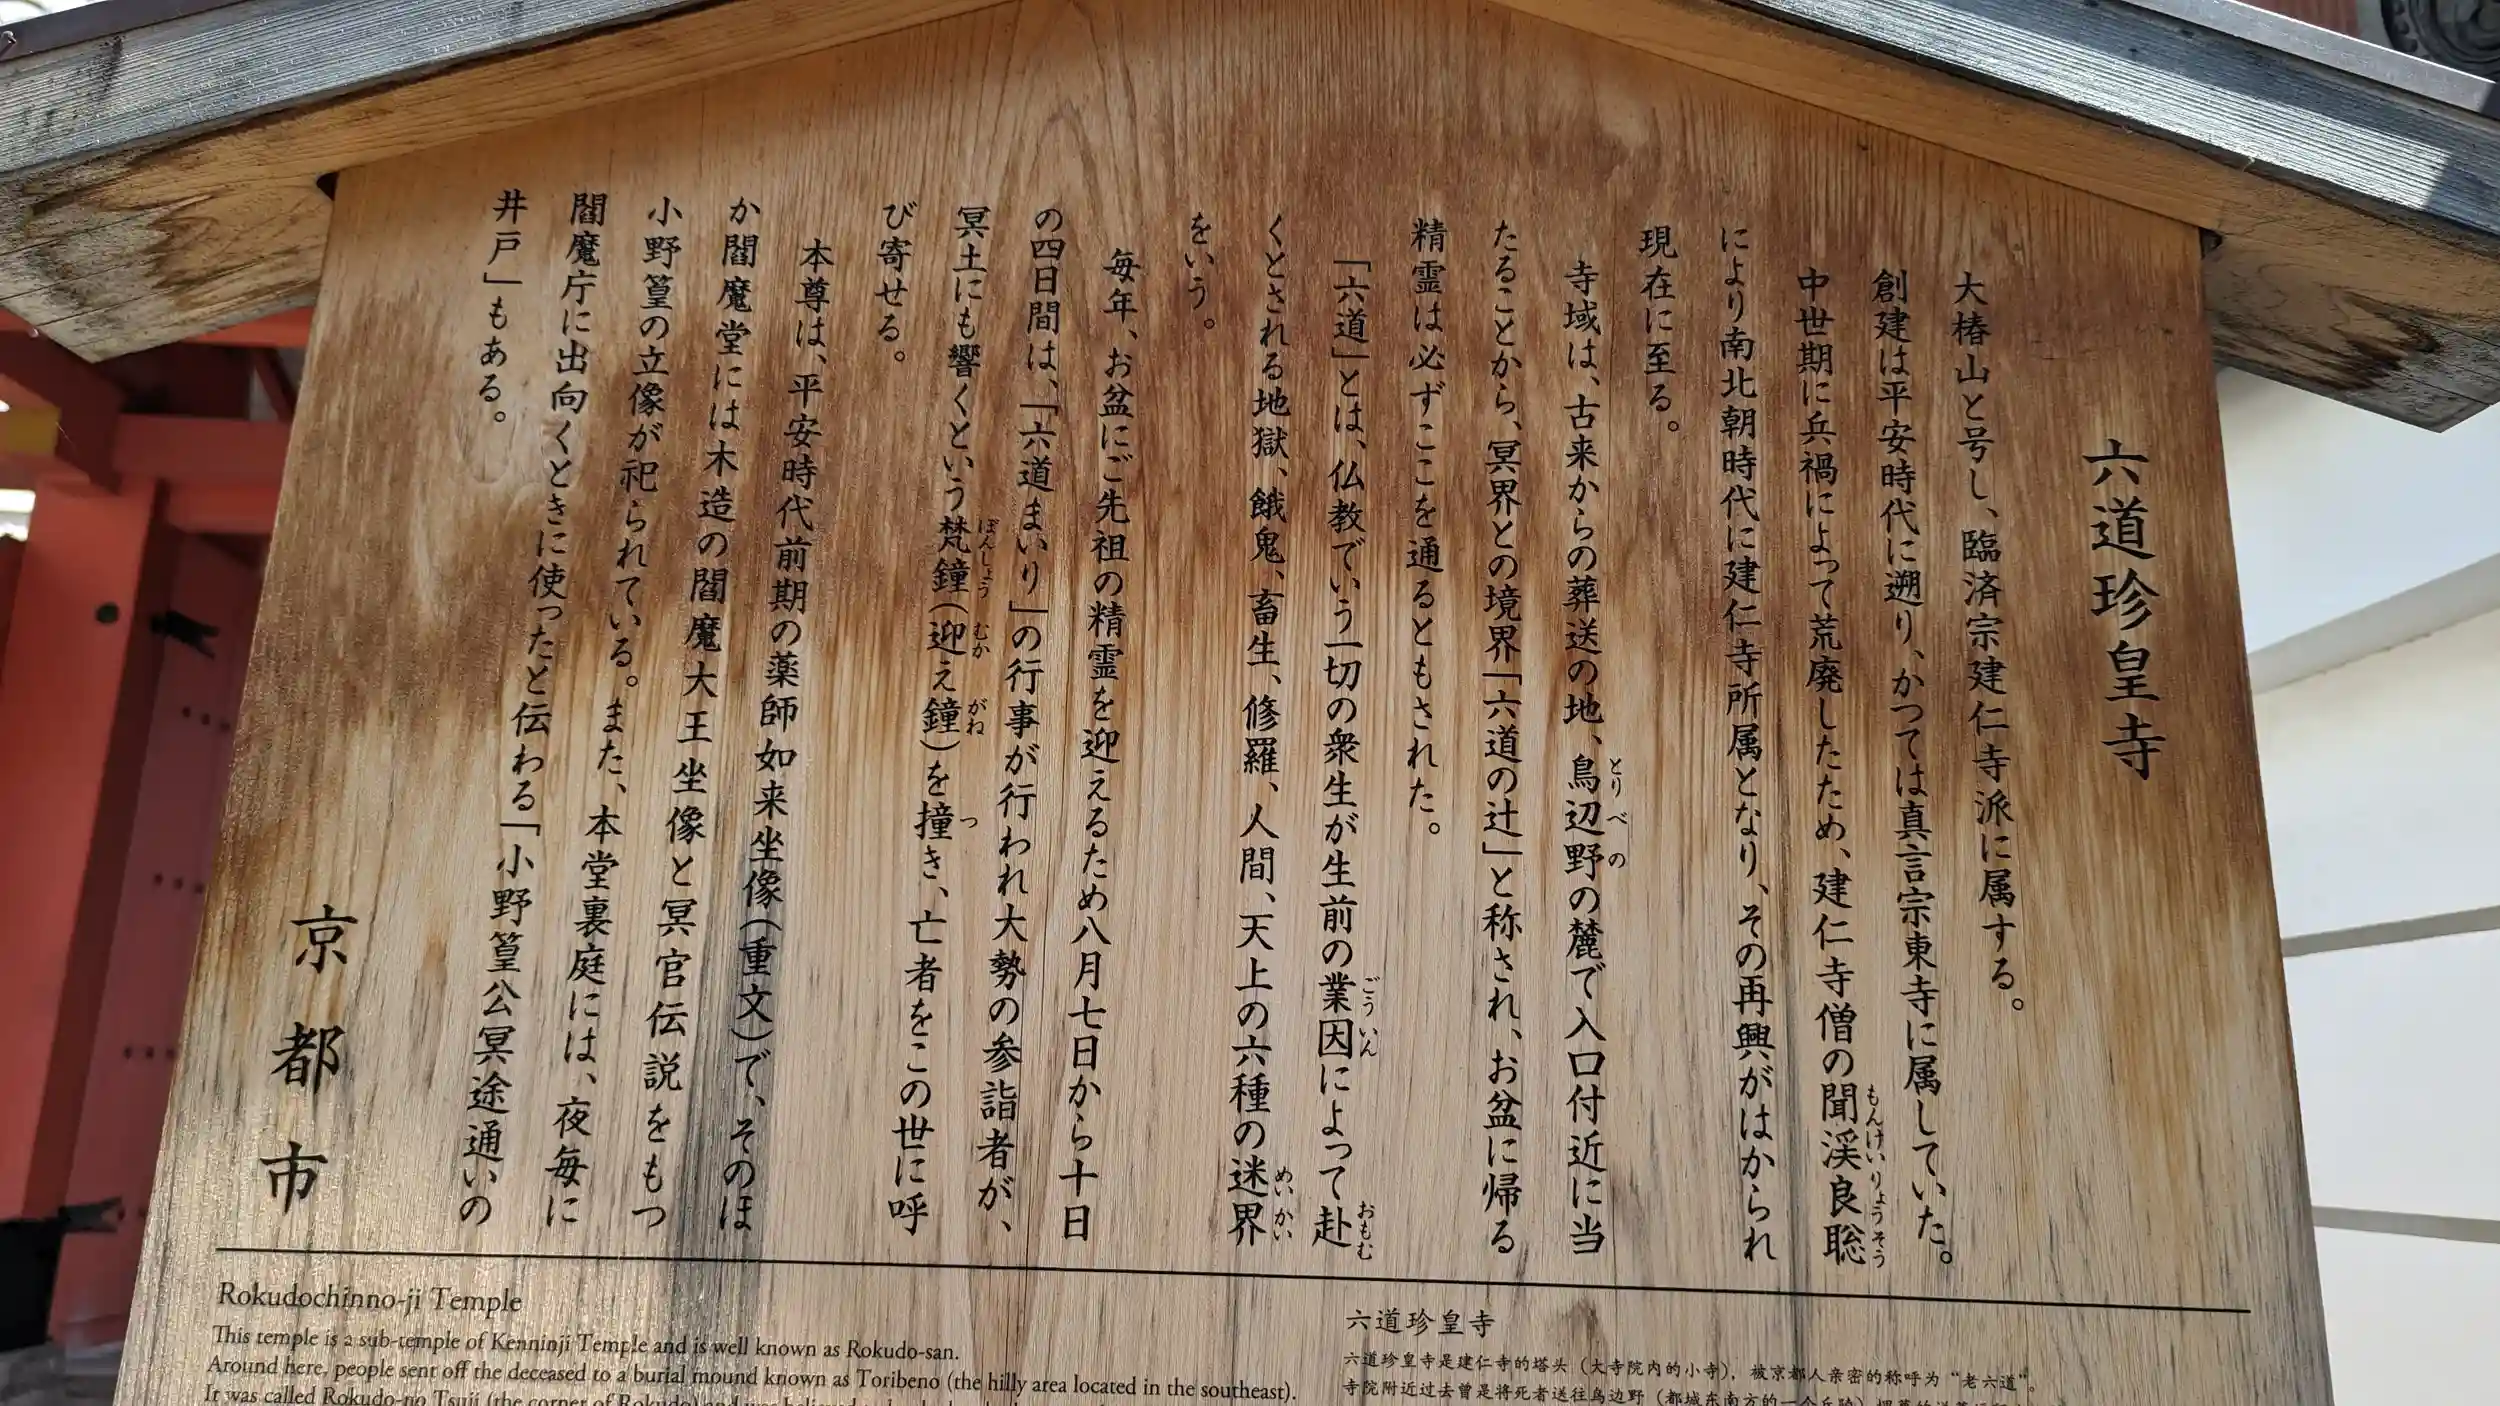 六道珍皇寺
大椿山と号し、臨済宗建仁寺派に属する。
創建は平安時代に遡り、かつては真言宗東寺に属していた。
中世期に兵禍によって荒廃したため、建仁寺僧の聞渓良聡
もんけいりょうそう
により南北朝時代に建仁寺所属となり、その再興がはかられ
現在に至る。
寺域は、古来からの葬送の地、鳥辺野の麓で入口付近に当
とりべの
たることから、冥界との境界「六道の辻」と称され、お盆に帰る
精霊は必ずここを通るともされた。
「六道」とは、仏教でいう一切の衆生が生前の業因によって赴
ごういん
おもむ
くとされる地獄、餓鬼、畜生、修羅、人間、天上の六種の迷界
めいかい
をいう。
毎年、お盆にご先祖の精霊を迎えるため八月七日から十日
の四日間は、「六道まいり」の行事が行われ大勢の参詣者が、
冥土にも響くという梵鐘(迎え鐘)を撞き、亡者をこの世に呼
ぼんしょう
むか
がね
つ
び寄せる。
本尊は、平安時代前期の薬師如来坐像(重文)で、そのほ
か閻魔堂には木造の閻魔大王坐像と冥官伝説をもつ
小野篁の立像が祀られている。また、本堂裏庭には、夜毎に
閻魔庁に出向くときに使ったと伝わる「小野篁公冥途通いの
井戸」もある。
京都市
Rokudochinno-ji Temple
This temple is a sub-temple of Kenninji Temple and is well known as Rokudo-san.
Around here, people sent off the deceased to a burial mound known as Toribeno (the hilly area located in the southeast).
It was called Rokudo-no Tsuji (the corner of Rokudo) and was believed
六道珍皇寺
六道珍皇寺是建仁寺的塔头（大寺院内的小寺），被京都人亲密的称呼为“老六道”。
寺院附近过去曾是将死者送往鸟边野（都城东南方的一个丘陵）